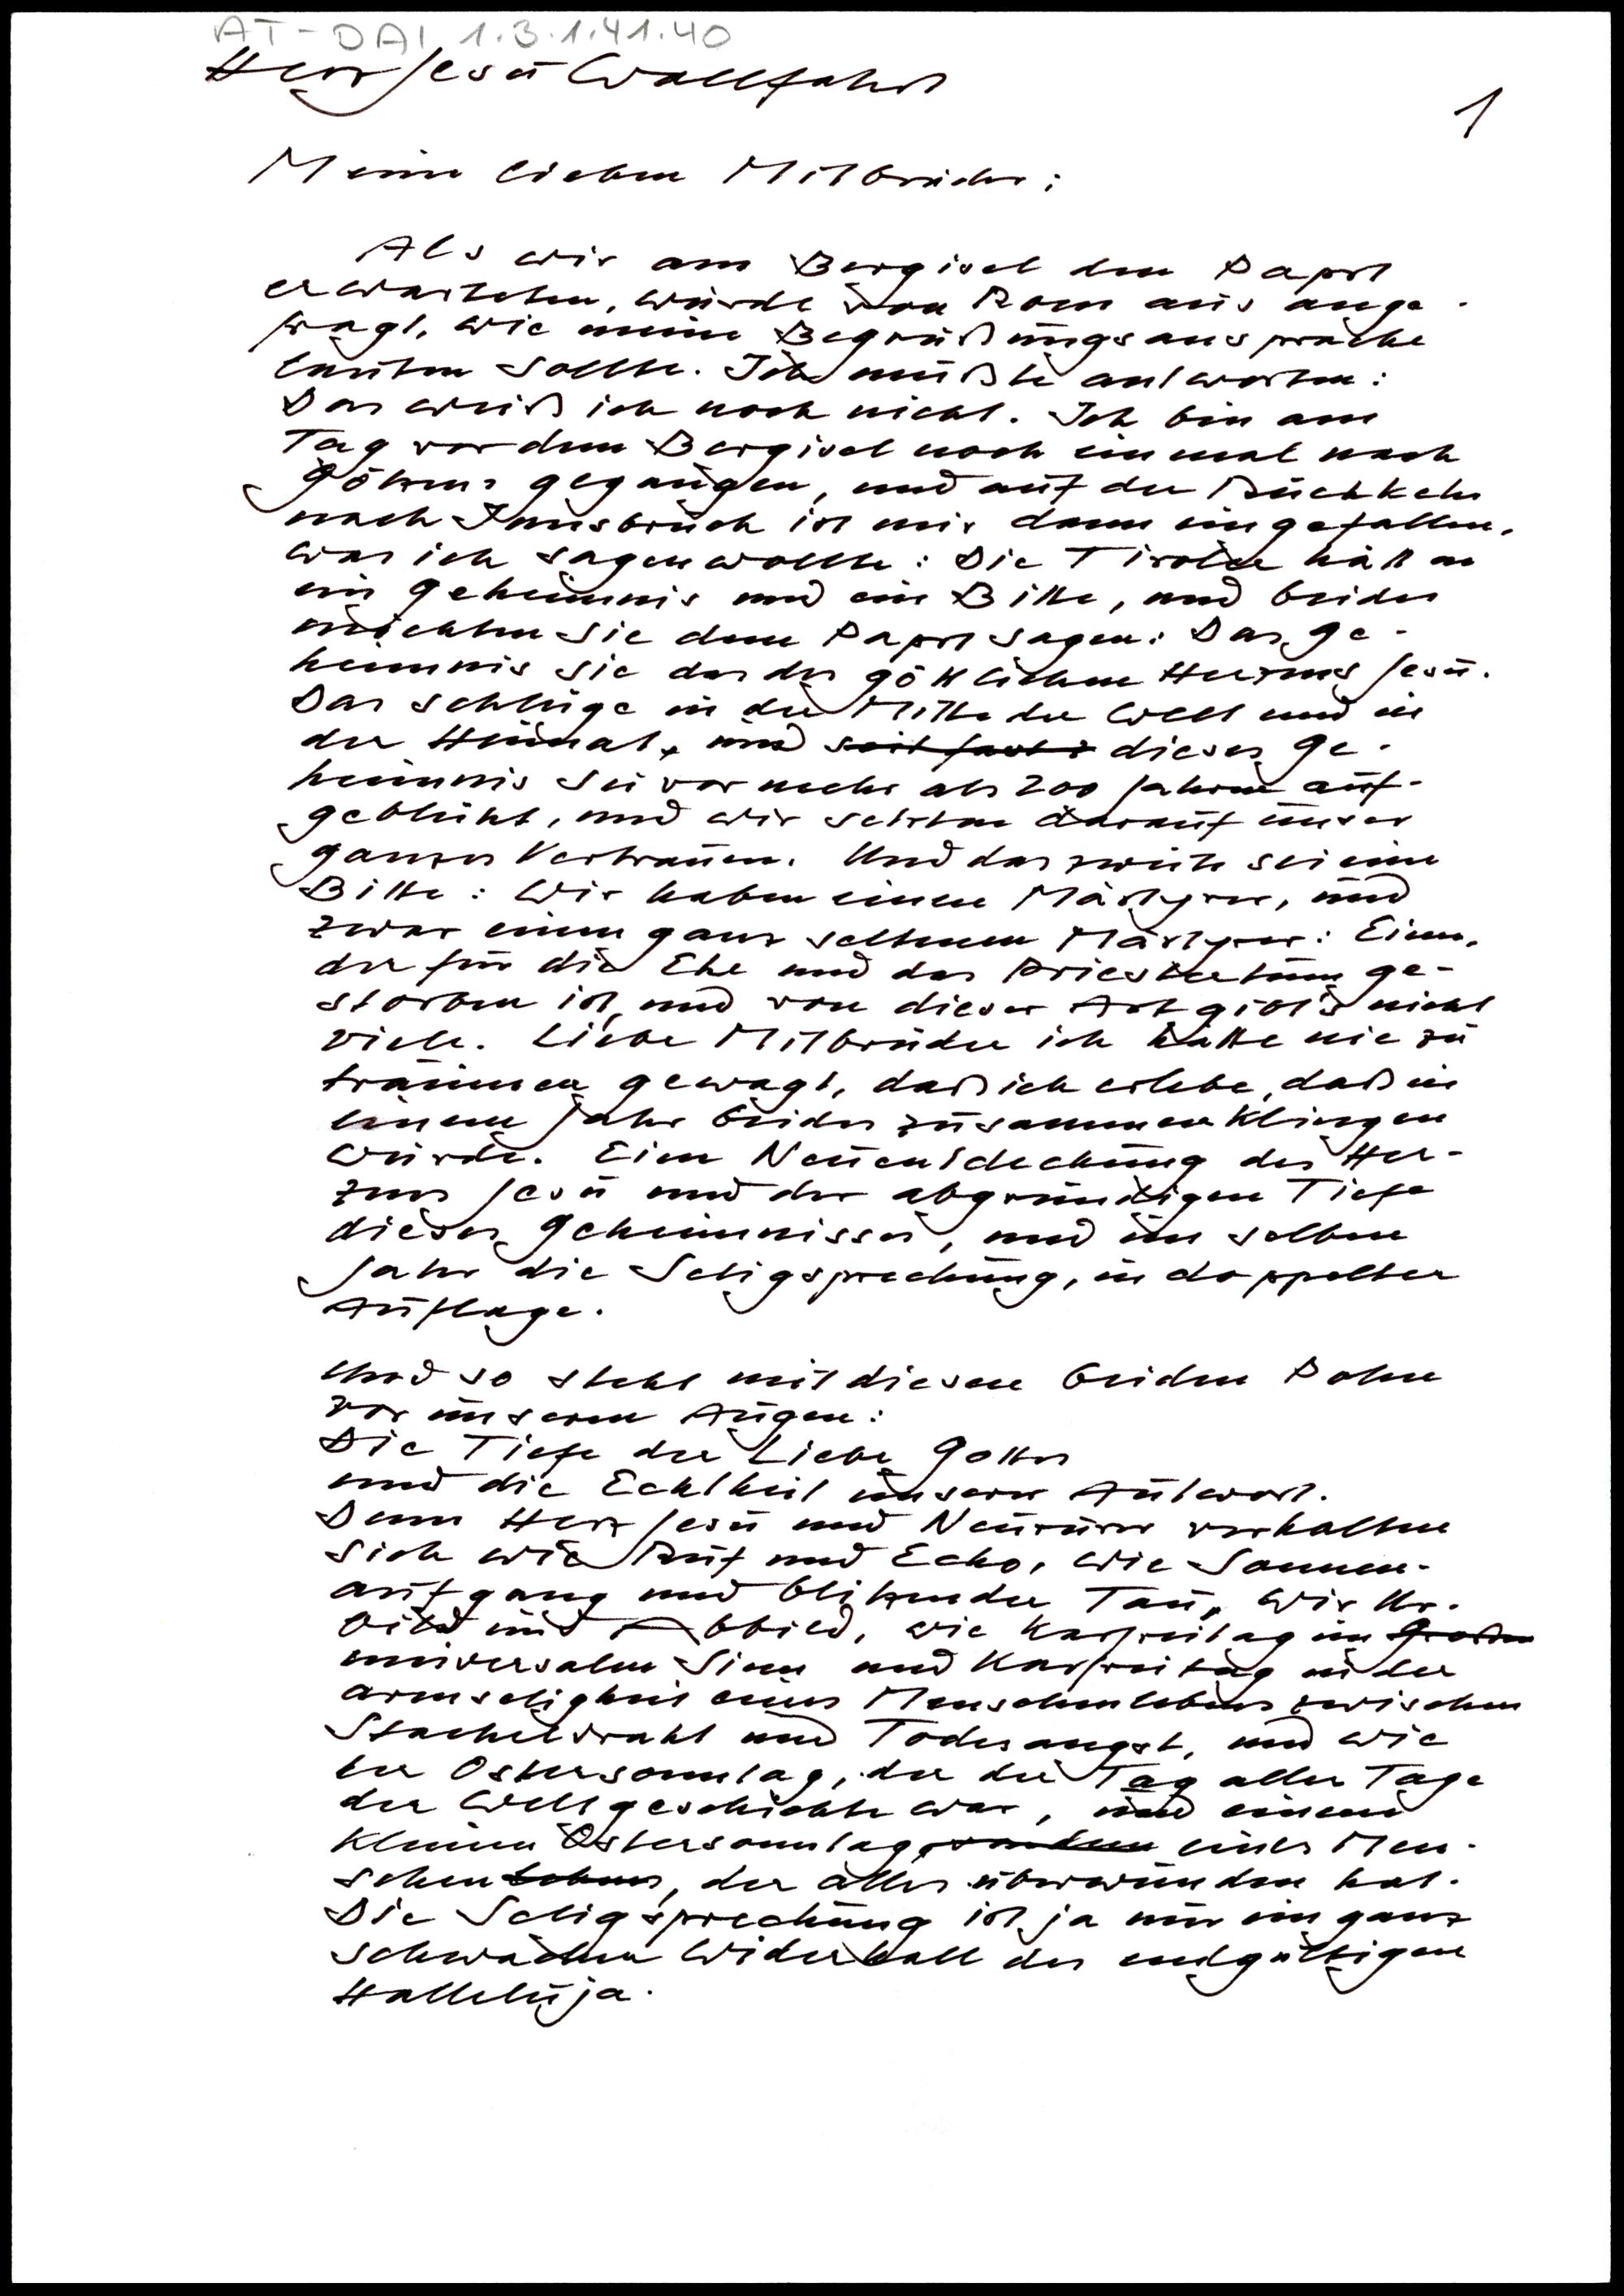 AT-DAI 1.3.1.41.40
Herz Jesu Wallfahrt
1
Meine lieben Mitbrüder;
Als wir am Bergisel den Papst
erwarteten, wurde von Rom aus ange-
fragt, wie meine Begrüßungsansprache
lauten sollte. Ich mußte antworten:
Das weiß ich noch nicht. Ich bin am
Tag vor dem Bergisel noch einmal nach
Götzens gegangen, und auf der Rückkehr
nach Innsbruck ist mir dann eingefallen,
was ich sagen wollte: Die Tiroler hätten
ein Geheimnis und eine Bitte, und beides
möchten sie dem Papst sagen: Das Ge-
heimnis sie das des göttlichen Herzens Jesu.
Das schlüge in der Mitte der Welt und in
der Heimat, und dieses Ge-
heimnis sei vor mehr als 200 Jahren auf-
geblüht, und wir setzten darauf unser
ganzes Vertrauen. Und das zweite sei eine
Bitte: Wir haben einen Märtyrer, und
zwar einen ganz seltenen Märtyrer: Einen,
der für die Ehe und das Priestertum ge-
storben ist, und von dieser Art gibt's nicht
viele. Liebe Mitbrüder ich hätte nie zu
träumen gewagt, daß ich erlebe, daß in
einem Jahr beides zusammenklingen
würde. Eine Neuentdeckung des Her-
zens Jesu und der abgründigen Tiefe
dieses Geheimnisses, und im selben
Jahr die Seligsprechung, in doppelter
Auflage.
Und so steht mit diesen beiden Polen
vor unseren Augen:
Die Tiefe der Liebe Gottes
und die Echtheit unserer Antwort.
Denn Herz Jesu und Neururer verhalten
sich wie Ruf und Echo, wie Sonnen-
aufgang und blitzender Tau, wie Ur-
bild und Abbild, wie Karfreitag im Großen
universalen Sinn und Karfreitag in der
Armseligkeit eines Menschenlebens zwischen
Stacheldraht und Todesangst, und wie
der Ostersonntag, der der Tag aller Tage
der Weltgeschichte war, und einem
kleinen Ostersonntag eines Men-
schen, der alles überwunden hat.
Die Seligsprechung ist ja nur ein ganz
schwacher Widerhall des endgültigen
Halleluja.